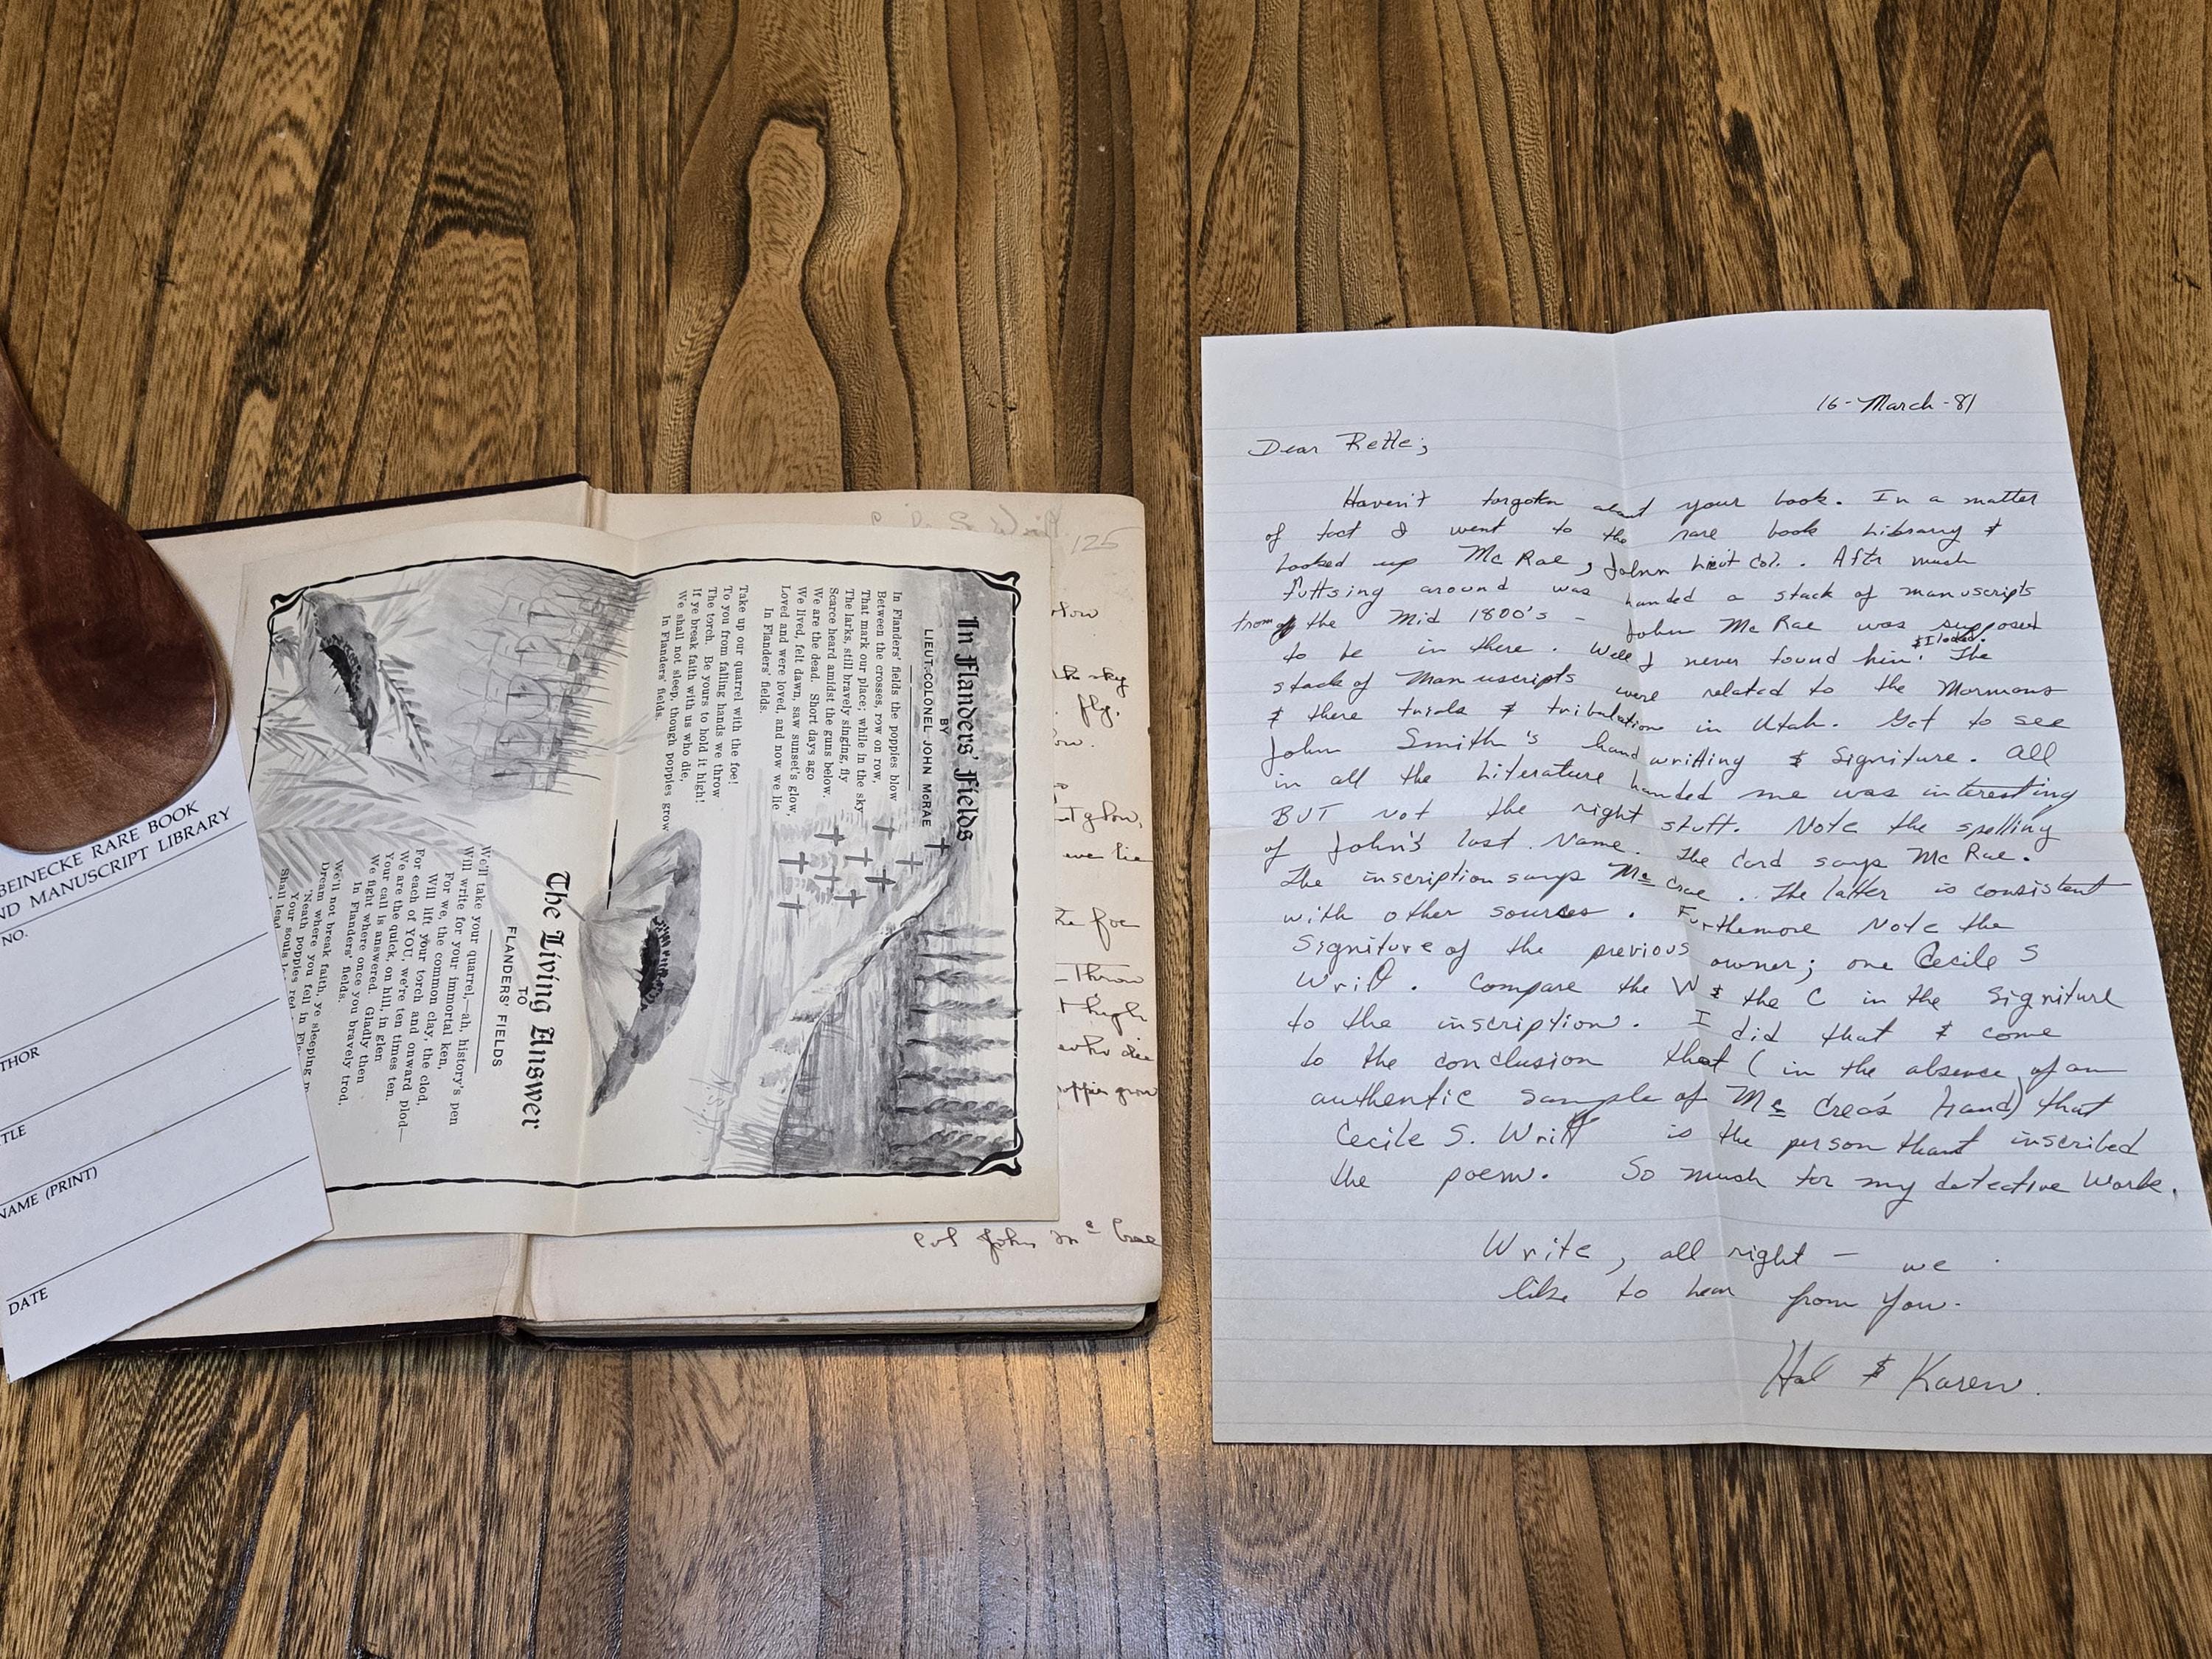 BEINECKE RARE BOOK
ND MANUSCRIPT LIBRARY
NO.
THOR
TLE
NAME (PRINT)
DATE
In Flanders' Fields
BY
LIEUT.-COLONEL JOHN McRAE
In Flanders' fields the poppies blow
Between the crosses, row on row,
That mark our place; while in the sky
The larks, still bravely singing, fly
Scarce heard amidst the guns below.
We are the dead. Short days ago
We lived, felt dawn, saw sunset's glow,
Loved and were loved, and now we lie
In Flanders' fields.
Take up our quarrel with the foe!
To you from falling hands we throw
The torch. Be yours to hold it high!
If ye break faith with us who die,
We shall not sleep, though poppies grow
In Flanders' fields.
The Living Answer
TO
FLANDERS' FIELDS
We'll take your quarrel,—ah, history's pen
Will write for your immortal ken,
For we, the common clay, the clod,
Will lift your torch and onward plod—
For each of YOU, we're ten times ten.
We are the quick, on hill, in glen
Your call is answered. Gladly then
We fight where once you bravely trod,
In Flanders' fields.
We'll not break faith, ye sleeping
Dream where you fell in
'Neath poppies red in
Your souls
Shall lead
125
the sky
fly.
glow,
we lie
the foe
Throw
high
who die
poppies grow
Col John Mc Crae
16-March-81
Dear Rette;
Haven't forgotn about your book. In a matter
of fact I went to the rare book Library &
Looked up Mc Rae, John Lieut Col. Aftr much
futtsing around was handed a stack of manuscripts
from the Mid 1800's - John Mc Rae was supposed
to be in there. Well I never found him! & I looked. The
stack of Manuscripts were related to the Mormons
& there trials & tribulation in Utah. Got to see
John Smith's hand writting & Signiture. All
in all the Literature handed me was interesting
BUT not the right stuff. Note the spelling
of John's last Name. The Card says Mc Rae.
The inscription says Mc Crae. The latter is consistent
with other sources. Furthemore Note the
Signiture of the previous owner; one Cecile S
Writt. Compare the W & the C in the Signiture
to the inscription. I did that & come
to the conclusion that (in the absence of an
authentic sample of Mc Crea's hand) that
Cecile S. Writt is the person that inscribed
the poem. So much for my detective Work.
Write, all right - we
like to hear from you.
Hal & Karen.